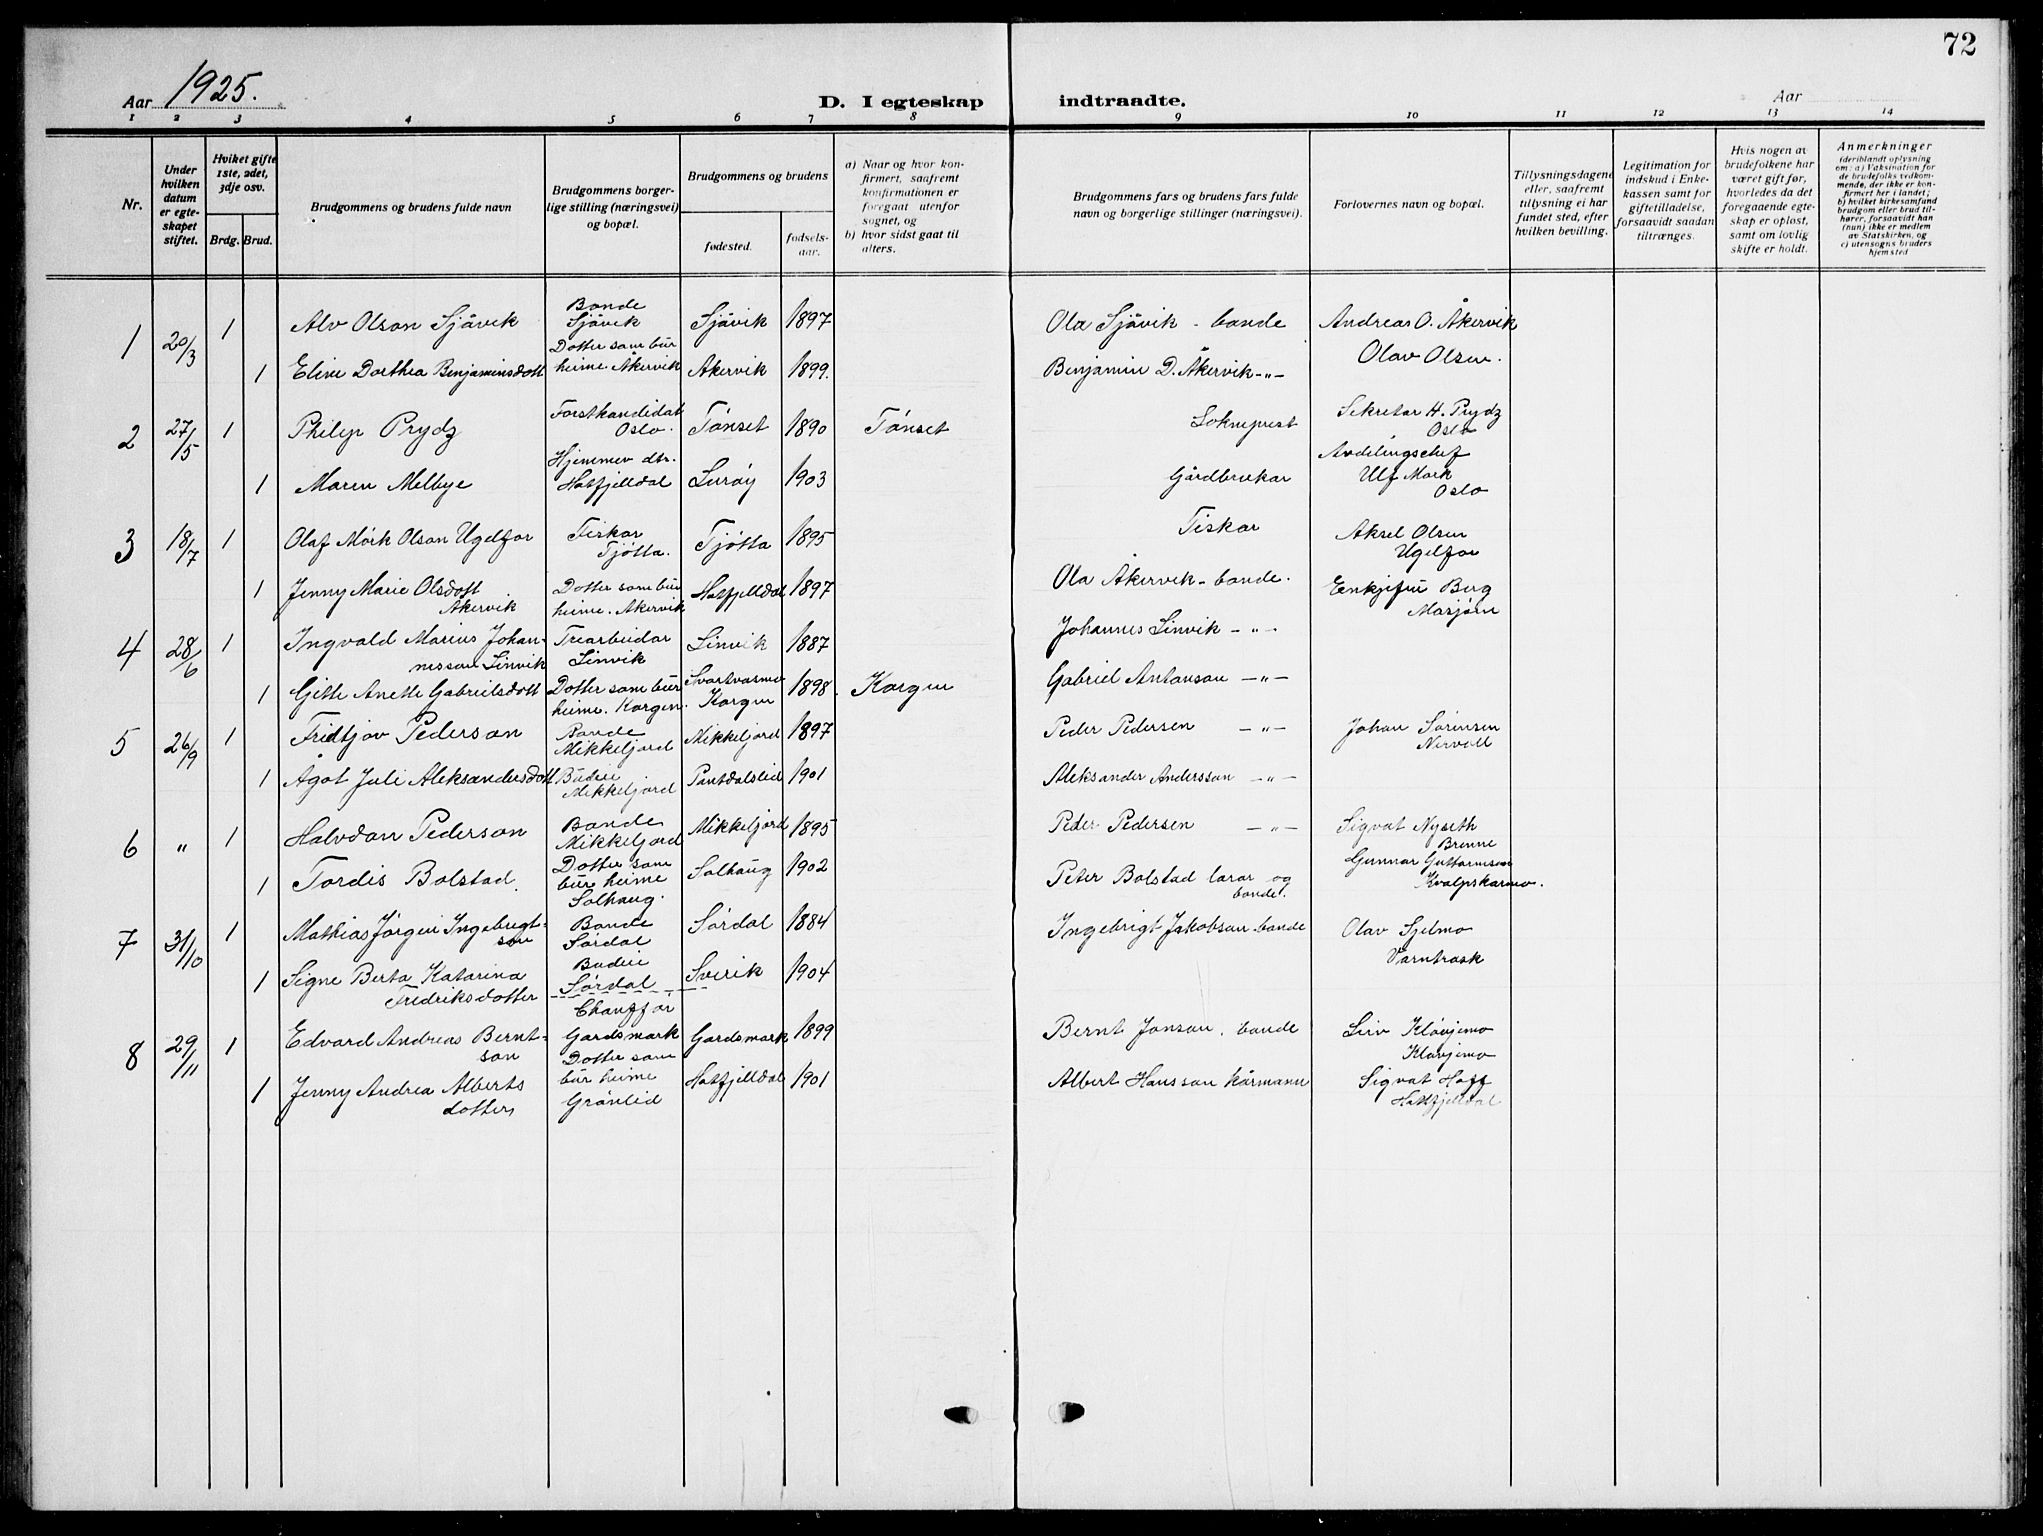 72
Aar 1925.
D. I egteskap indtraadte.
Aar
1 2 3 4 5 6 7 8 9 10 11 12 13 14
Nr.
Under hvilken datum er egteskapet stiftet.
Hviket gifte 1ste, 2det, 3dje osv.
Brdg. Brud.
Brudgommens og brudens fulde navn
Brudgommens borgerlige stilling (næringsvei) og bopæl.
Brudgommens og brudens
fødested.
fødselsaar.
a) Naar og hvor konfirmert, saafremt konfirmationen er foregaat utenfor sognet, og
b) hvor sidst gaat til alters.
Brudgommens fars og brudens fars fulde navn og borgerlige stillinger (næringsvei).
Forlovernes navn og bopæl.
Tillysningsdagene eller, saafremt tillysning ei har fundet sted, efter hvilken bevilling.
Legitimation for indskud i Enkekassen samt for giftetilladelse, forsaavidt saadan tiltrænges.
Hvis nogen av brudefolkene har været gift før, hvorledes da det foregaaende egteskap er opløst, samt om lovlig skifte er holdt.
Anmerkninger (deriblandt oplysning om: a) Vaksination for de brudefolks vedkommende, der ikke er konfirmert her i landet; b) hvilket kirkesamfund brudgom eller brud tilhører, forsaavidt han (hun) ikke er medlem av Statskirken, og c) utensogns bruders hjemsted
1 20/3 1 Alv Olson Sjåvik Bonde Sjåvik Sjåvik 1897 Ola Sjåvik - bonde Andreas O. Åkervik
1 Eline Dorthea Benjaminsdott Dotter som bur heime. Åkervik Åkervik 1899. Benjamin D. Åkervik -"- Olav Olsen.
2 27/5 1 Philip Prydz Forstkandidat Oslo. Tønset 1890 Tønset Sokneprest Sekretær H. Prydz Oslo
1 Maren Melbye Hjemmev dtr. Hatfjelldal Lurøy 1903 Gårdbrukar Avdelingschef Ulf Mork Oslo
3 18/7 1 Olaf Mørk Olson Ugelfor Fiskar Tjøtta. Tjøtta 1895 Fiskar Aksel Olsen Ugelfor
1 Jenny Marie Olsdott Åkervik Dotter som bur heime. Åkervik Hatfjelldal 1897 Ola Åkervik - bonde. Enkjefru Berg Mosjøen
4 28/6 1 Ingvald Marius Johannesson Sinvik Trearbeidar Sinvik Sinvik 1887 Johannes Sinvik -"-
1 Gitte Anette Gabrielsdott Dotter som bur heime. Korgen. Svartvasmo Korgen 1898. Korgen Gabriel Antonson -"-
5 26/9 1 Fridtjov Pederson Bonde Mikkeljord Mikkeljord 1897 Peder Pedersen -"- Johan Sørensen Nervoll
1 Ågot Juli Aleksandersdott Budeie Mikkeljord Pantdalslid 1901 Aleksander Andersson -"-
6 " 1 Halvdan Pederson Bonde Mikkeljord Mikkeljord 1895 Peder Pedersen -"- Sigvat Nyseth Brenne
1 Tordis Bolstad. Dotter som bur heime Solhaug. Solhaug 1902 Peter Bolstad lærar og bonde. Gunnar Guttormson Kvalpskarmo.
7 31/10 1 Mathias Jørgen Ingebrigtson Bonde Sørdal Sørdal 1884 Ingebrigt Jakobson bonde Olav Sjelmo
1 Signe Berta Katarina Fredriksdotter Budeie Sørdal Sverik 1904 Varntresk
8 29/11 1 Edvard Andreas Berntson Chauffør Gardsmark Gardsmark 1899 Bernt Jonson, bonde Siv Kløvjemo Kløvjemo
1 Jenny Andrea Alberts dotter Dotter som bur heime Grønlid Hatfjelldal 1901 Albert Hansson kårmann Sigvat Hoff Hattfjelldal